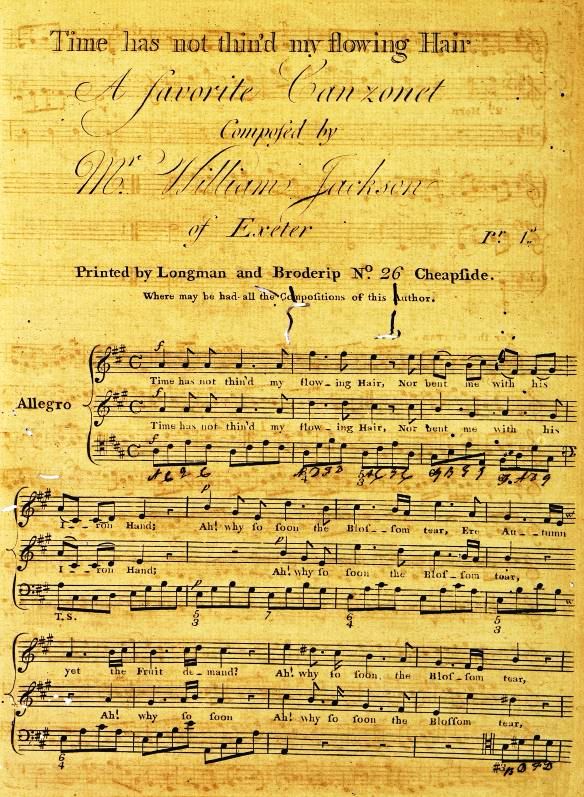 Time has not thin'd my flowing Hair
A favorite Canzonet
Composed by
Mr. William Jackson
of Exeter
Pr. 1s.
Printed by Longman and Broderip No. 26 Cheapside.
Where may be had all the Compositions of this Author.
Time has not thin'd my flow-ing Hair, Nor bent me with his
Allegro
Time has not thin'd my flow-ing Hair, Nor bent me with his
I--ron Hand; Ah! why so soon the Blos--som tear, Ere Au-tumn
I--ron Hand; Ah! why so soon the Blos-som tear,
T.S. 5 3 7 6 4 5 3
yet the Fruit de-mand? Ah! why so soon the Blos-som tear,
Ah! why so soon Ah! why so soon the Blossom tear,
6 4